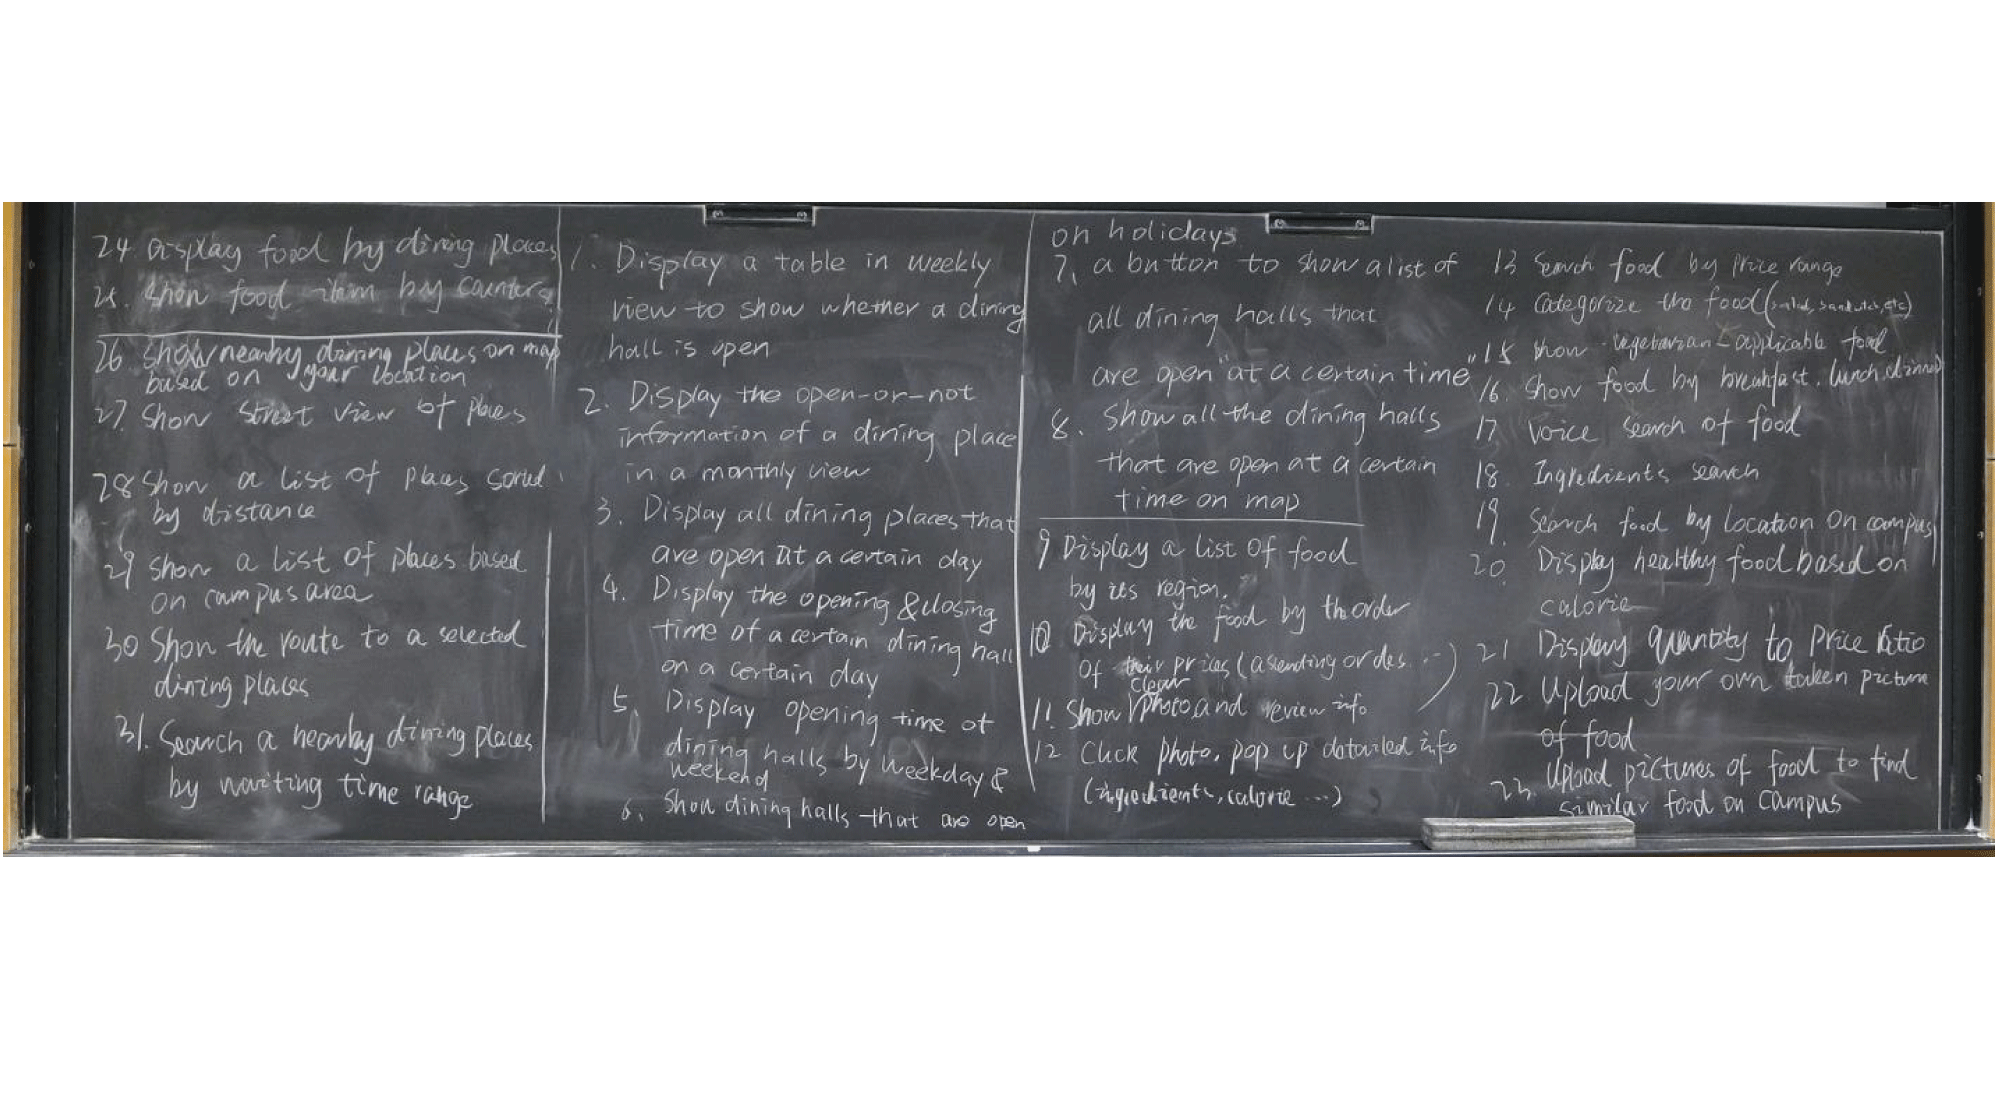 24 Display food by dining places
25. Show food item by counters
26 Show nearby dining places on map
based on your location
27. Show street view of places
28 Show a list of places sorted
by distance
29 Show a list of places based
on campus area
30 Show the route to a selected
dining places
31. Search a nearby dining places
by waiting time range
1. Display a table in weekly
view to show whether a dining
hall is open
2. Display the open-or-not
information of a dining place
in a monthly view
3. Display all dining places that
are open at a certain day
4. Display the opening & closing
time of a certain dining hall
on a certain day
5. Display opening time of
dining halls by weekday &
weekend
6. Show dining halls that are open
on holidays
7. a button to show a list of
all dining halls that
are open "at a certain time"
8. Show all the dining halls
that are open at a certain
time on map
9 Display a list of food
by its region.
10 Display the food by th order
of their prices (ascending or des...)
clear
11. Show photo and review info
12 Click photo, pop up detailed info
(ingredients, calorie ...)
13 Search food by price range
14 Categorize the food (salad, sandwich, etc)
15 Show vegetarian-applicable food
16. Show food by breakfast, lunch, dinner
17 Voice search of food
18. Ingredients search
19. Search food by location on campus
20. Display healthy food based on
calorie
21 Display quantity to price ratio
22 Upload your own taken picture
of food
23. Upload pictures of food to find
similar food on campus